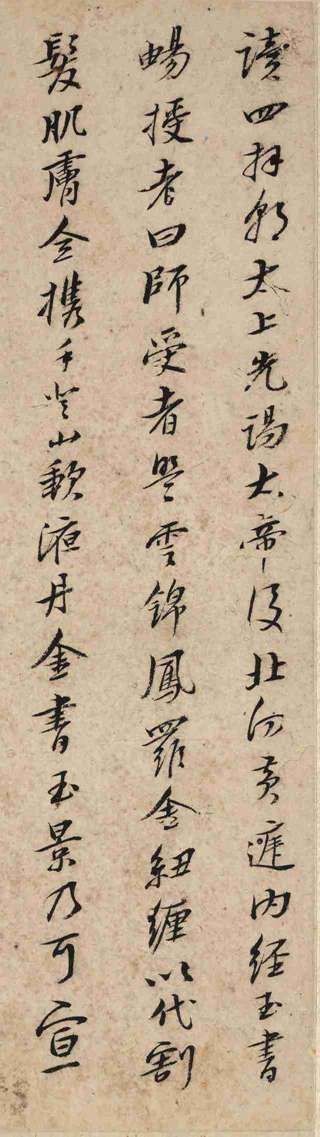 讀四拜朝太上先謁太帝後北向黃庭內經玉書
暢授者曰師受者盟雲錦鳳羅金紐纏以代割
髮肌膚全攜手登山歃液丹金書玉景乃可宣